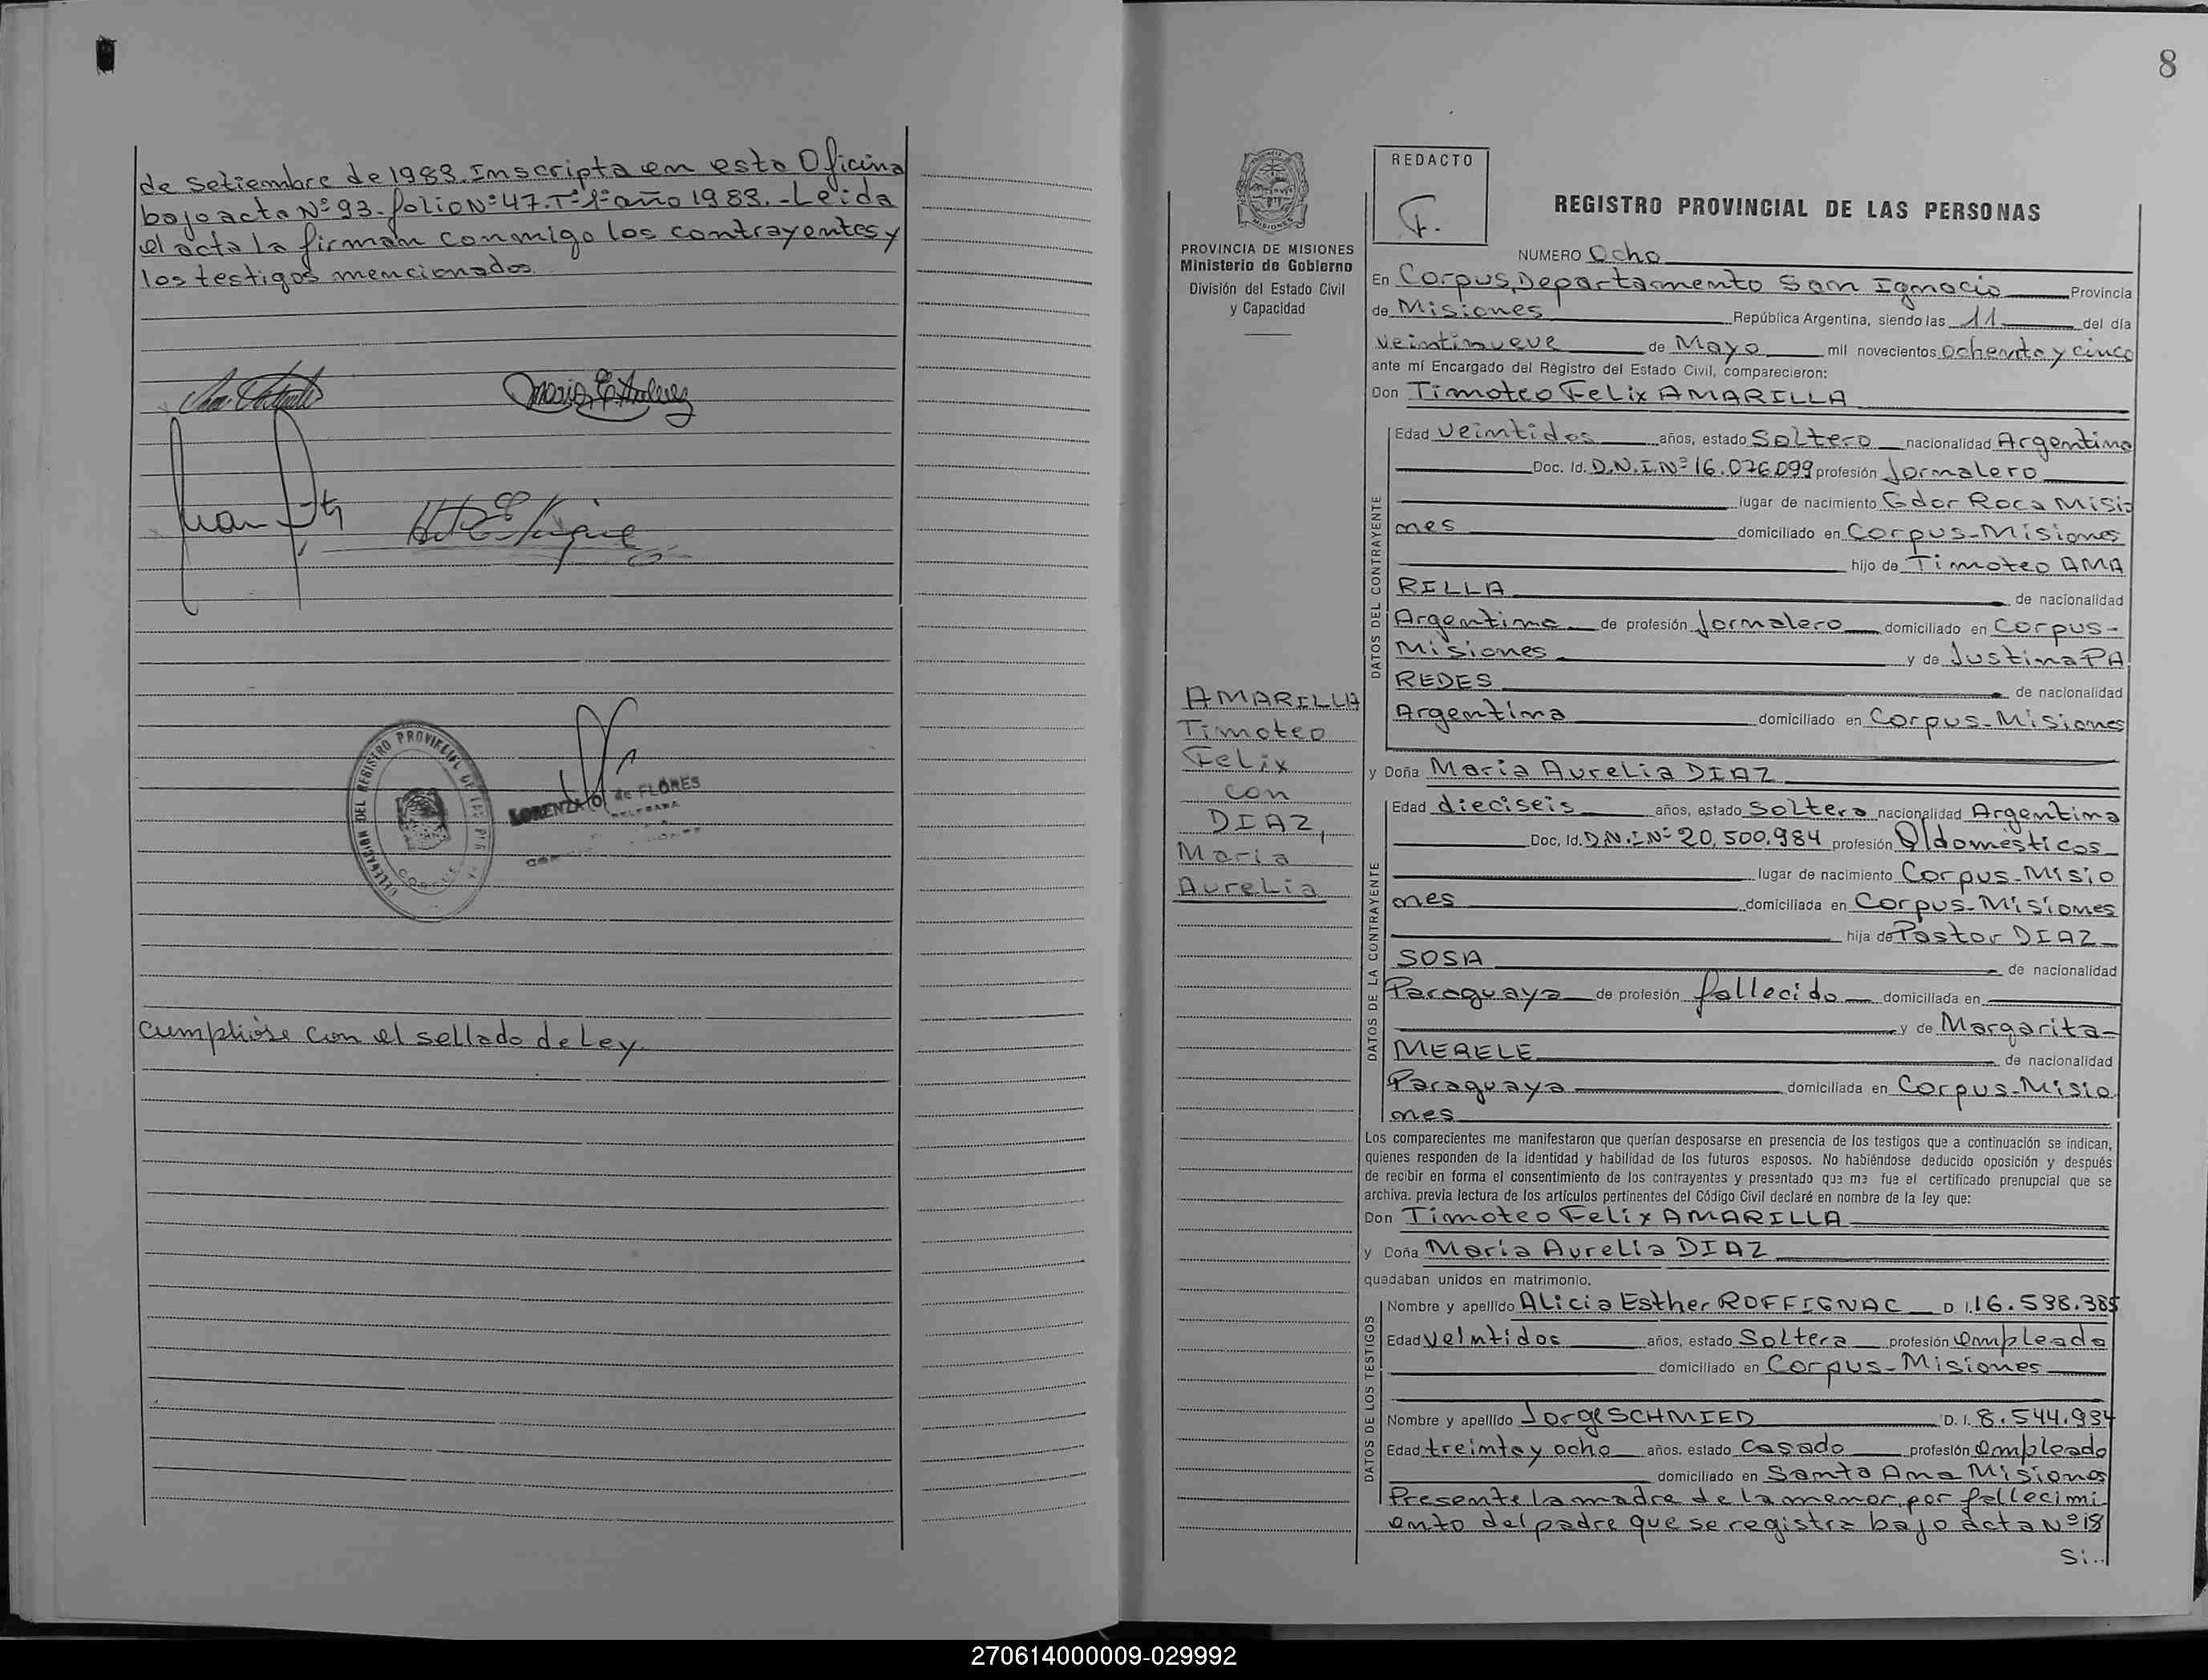 de Setiembre de 1983. Inscripta en esta Oficina
bajo acta Nº 93. folio Nº 47. Tº 1º año 1983. - Leida
el acta la firman conmigo los contrayentes y
los testigos mencionados
DELEGACION DEL REGISTRO PROVINCIAL DE LAS PER
CORPUS
LORENZA de FLORES
Cumplióse con el sellado de Ley
8
PROVINCIA DE MISIONES
Ministerio de Gobierno
División del Estado Civil
y Capacidad
AMARILLA
Timoteo
Felix
con
DIAZ,
Maria
Aurelia
REDACTO
F.
REGISTRO PROVINCIAL DE LAS PERSONAS
NUMERO Ocho
En Corpus, Departamento San Ignacio Provincia
de Misiones República Argentina, siendo las 11 del día
veintinueve de Mayo mil novecientos ochenta y cinco
ante mí Encargado del Registro del Estado Civil, comparecieron:
Don Timoteo Felix AMARILLA
DATOS DEL CONTRAYENTE
Edad veintidos años, estado Soltero nacionalidad Argentina
Doc. Id. D.N.I. Nº 16.076.099 profesión Jornalero
lugar de nacimiento Gdor Roca Misio
nes domiciliado en Corpus-Misiones
hijo de Timoteo AMA
RILLA de nacionalidad
Argentina de profesión Jornalero domiciliado en Corpus-
Misiones y de Justina PA
REDES de nacionalidad
Argentina domiciliado en Corpus-Misiones
y Doña Maria Aurelia DIAZ
DATOS DE LA CONTRAYENTE
Edad dieciseis años, estado Soltera nacionalidad Argentina
Doc. Id. D.N.I. Nº 20.500.984 profesión Q/domesticos
lugar de nacimiento Corpus-Misio
nes domiciliada en Corpus-Misiones
hija de Pastor DIAZ
SOSA de nacionalidad
Paraguaya de profesión fallecido domiciliada en
y de Margarita
MERELE de nacionalidad
Paraguaya domiciliada en Corpus-Misio
nes
Los comparecientes me manifestaron que querían desposarse en presencia de los testigos que a continuación se indican,
quienes responden de la identidad y habilidad de los futuros esposos. No habiéndose deducido oposición y después
de recibir en forma el consentimiento de los contrayentes y presentado que me fue el certificado prenupcial que se
archiva, previa lectura de los artículos pertinentes del Código Civil declaré en nombre de la ley que:
Don Timoteo Felix AMARILLA
y Doña Maria Aurelia DIAZ
quedaban unidos en matrimonio.
DATOS DE LOS TESTIGOS
Nombre y apellido Alicia Esther ROFFIGNAC D I. 16.598.385
Edad veintidos años, estado Soltera profesión empleada
domiciliado en Corpus-Misiones
Nombre y apellido Jorge SCHMIED D. I. 8.544.934
Edad treinta y ocho años, estado Casado profesión empleado
domiciliado en Santa Ana Misiones
Presente la madre de la menor, por fallecimi
ento del padre que se registra bajo acta Nº 18
Si..
270614000009-029992